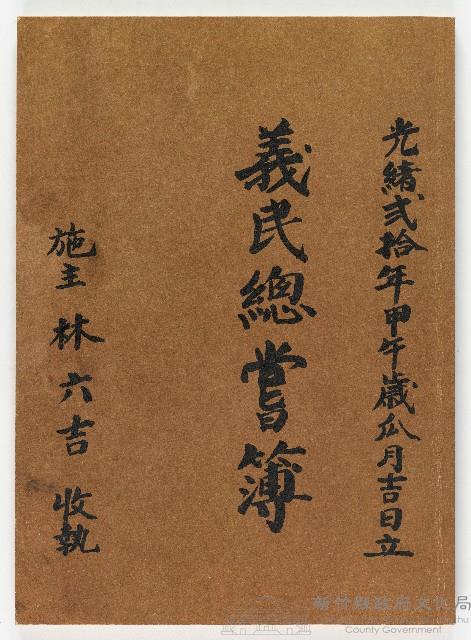 光緒弍拾年甲午歲瓜月吉日立
義民總嘗簿
施主林六吉收執
新竹縣政府文化局
County Government